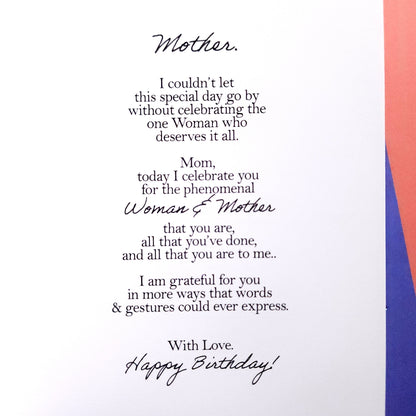 Mother.
I couldn't let
this special day go by
without celebrating the
one Woman who
deserves it all.
Mom,
today I celebrate you
for the phenomenal
Woman & Mother
that you are,
all that you've done,
and all that you are to me..
I am grateful for you
in more ways that words
& gestures could ever express.
With Love.
Happy Birthday!